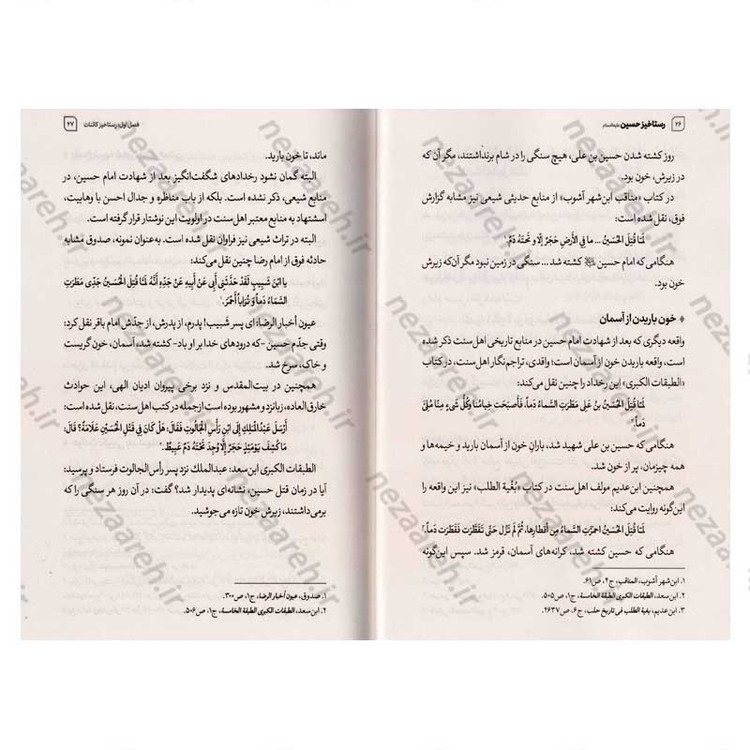 ۲۶ رستاخیز حسین علیه‌السلام
روز کشته شدن حسین بن علی، هیچ سنگی را در شام برنداشتند، مگر آن که
در زیرش، خون بود.
در کتاب «مناقب ابن‌شهر آشوب» از منابع حدیثی شیعی نیز مشابه گزارش
فوق، نقل شده است:
لَمَّا قُتِلَ الْحُسَيْنُ ... مَا فِي الْأَرْضِ حَجَرٌ إِلَّا وَ تَحْتَهُ دَمٌ ۱
هنگامی که امام حسین ﷺ کشته شد ... سنگی در زمین نبود مگر آن‌که زیرش
خون بود.
♦ خون باریدن از آسمان
واقعه دیگری که بعد از شهادت امام حسین در منابع تاریخی اهل‌سنت ذکر شده
است، واقعه باریدن خون از آسمان است؛ واقدی، تراجم‌نگار اهل‌سنت، در کتاب
«الطبقات الکبری» این رخداد را چنین نقل می‌کند:
لَمَّا قُتِلَ الْحُسَيْنُ بن علی مَطَرَتِ السَّمَاءُ دَماً، فَأَصْبَحَت خِيَامُنَا وَكُلُّ شَيْءٍ مِنَّا مُلِئَ
دَماً. ۲
هنگامی که حسین بن علی شهید شد، بارانِ خون از آسمان بارید و خیمه‌ها و
همه چیزمان، پر از خون شد.
همچنین ابن‌عدیم مولف اهل سنت در کتاب «بُغیة الطلب» نیز این واقعه را
این‌گونه روایت می‌کند:
لَمَّا قُتِلَ الْحُسَيْنُ احمَرَّتِ السَّمَاءُ مِن أَقْطَارِهَا، ثُمَّ لَمْ تَزَل حَتَّى تَفَطَّرَت فَقَطَرَت دَماً. ۳
هنگامی که حسین کشته شد، کرانه‌های آسمان، قرمز شد. سپس این‌گونه
۱. ابن‌شهر آشوب، المناقب، ج۴، ص۶۱.
۲. ابن‌سعد، الطبقات الکبری الطبقة الخامسة، ج۱، ص۵۰۵.
۳. ابن‌عدیم، بغیة الطلب فی تاریخ حلب، ج۶، ص۲۶۳۷.
فصل اول؛ رستاخیز کائنات ۲۷
ماند، تا خون بارید.
البته گمان نشود رخدادهای شگفت‌انگیز بعد از شهادت امام حسین، در
منابع شیعی، ذکر نشده است. بلکه از باب مناظره و جدال احسن با وهابیت،
استشهاد به منابع معتبر اهل‌سنت در اولویت این نوشتار قرار گرفته است.
البته در تراث شیعی نیز فراوان نقل شده است. به‌عنوان نمونه، صدوق مشابه
حادثه فوق از امام رضا چنین نقل می‌کند:
يا ابْنَ شَبِيبٍ لَقَدْ حَدَّثَنِي أَبِي عَنْ أَبِيهِ عَنْ جَدِّهِ أَنَّهُ لَمَّا قُتِلَ الْحُسَيْنُ جَدِّي مَطَرَتِ
السَّمَاءُ دَماً وَ تُرَاباً أَحْمَرَ. ۱
عیون أخبار الرضا: ای پسر شَبیب! پدرم، از پدرش، از جدّش امام باقر نقل کرد:
وقتی جدّم حسین -که درودهای خدا بر او باد- کشته شد، آسمان، خون گریست
و خاک، سرخ شد.
همچنین در بیت‌المقدس و نزد برخی پیروان ادیان الهی، این حوادث
خارق العاده، زبانزد و مشهور بوده است از جمله در کتب اهل‌سنت، نقل شده است:
أَرْسَلَ عَبْدُالْمَلِكِ إِلَى ابْنِ رَأْسِ الْجَالُوتِ فَقَالَ، هَلْ كَانَ فِي قَتْلِ الْحُسَيْنِ عَلَامَةٌ؟ قَالَ،
مَا كُشِفَ يَوْمَئِذٍ حَجَرٌ إِلَّا وُجِدَ تَحْتَهُ دَمٌ عَبِيطٌ. ۲
الطبقات الکبری ابن‌سعد: عبدالملک نزد پسر رأس الجالوت فرستاد و پرسید:
آیا در زمان قتل حسین، نشانه‌ای پدیدار شد؟ گفت: در آن روز هر سنگی را که
برمی‌داشتند، زیرش خون تازه می‌جوشید.
۱. صدوق، عیون أخبار الرضا، ج۱، ص۳۰۰.
۲. ابن‌سعد، الطبقات الکبری الطبقة الخامسة، ج۱، ص۵۰۶.
nezaareh.ir